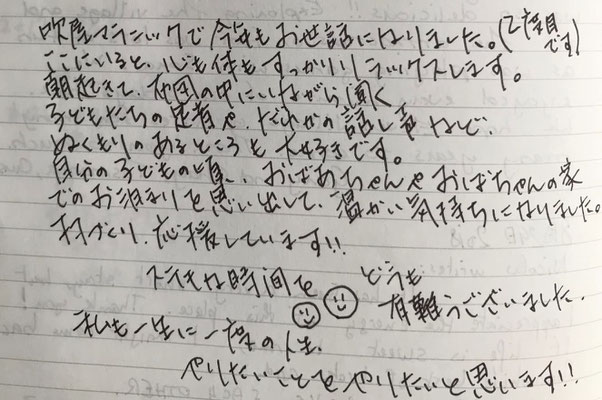 吹屋マラニックで今年もお世話になりました。(2度目です)
ここにいると、心も体もすっかりリラックスします。
朝起きて、布団の中にいながら聞く
子どもたちの足音や、だれかの話し声など、
ぬくもりのあるところも大好きです。
自分の子どもの頃、おばあちゃんやおばちゃんの家
でのお泊まりを思い出して、温かい気持ちになりました。
村づくり、応援しています!!
ステキな時間を どうも
有難うございました。
私も一生に一度の人生、
やりたいことをやりたいと思います!!